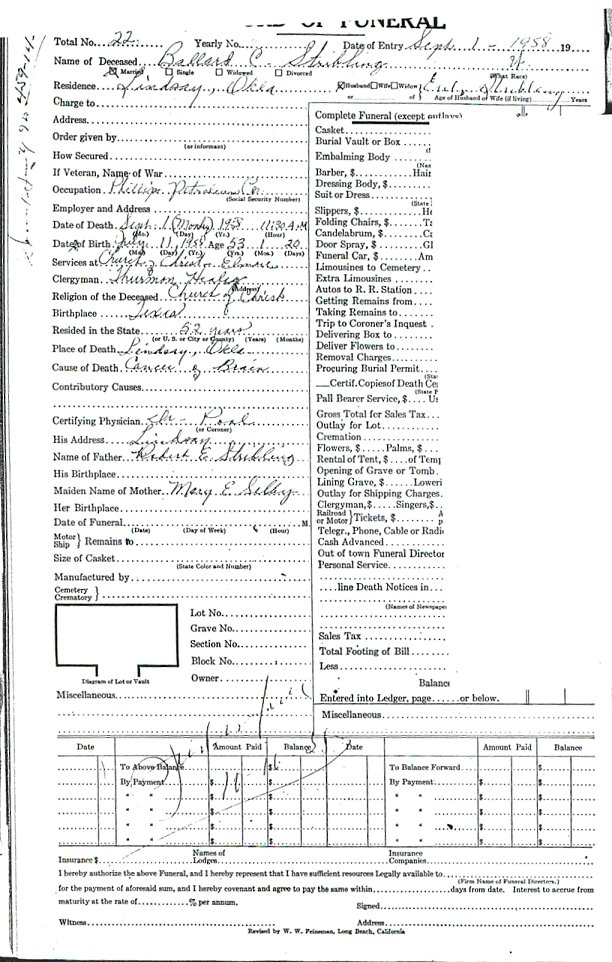 OF FUNERAL
Total No. 22 Yearly No. Date of Entry Sept 1 - 1958 19
Name of Deceased Ballard C. Stribling W
Married Single Widowed Divorced (What Race)
Residence Lindsay, Okla Husband Wife Widow Stribling
or of Age of Husband or Wife (if living) Years
Charge to
Address
Order given by
(or informant)
How Secured
If Veteran, Name of War
Occupation Phillips Petroleum Co.
(Social Security Number)
Employer and Address
Date of Death Sept. 1 (Monday) 1958 11:30 A.M.
(Mo.) (Day) (Yr.) (Hour)
Date of Birth July 11, 1958 Age 53 1 20
(Mo) (Day) (Yr.) (Yrs.) (Mos.) (Days)
Services at Church of Christ - Elmore
Clergyman Thurman
(Address)
Religion of the Deceased Church of Christ
Birthplace Texas
Resided in the State 52 years
(or U. S. or City or County) (Years) (Months)
Place of Death Lindsay, Okla
Cause of Death Cancer of Brain
Contributory Causes
Certifying Physician Dr -
(or Coroner)
His Address Lindsay
Name of Father Robert E Stribling
His Birthplace
Maiden Name of Mother Mary E. Selby
Her Birthplace
Date of Funeral M.
(Date) (Day of Week) (Hour)
Motor Ship } Remains to
Size of Casket
(State Color and Number)
Manufactured by
Cemetery Crematory }
Lot No.
Grave No.
Section No.
Block No.
Owner
Diagram of Lot or Vault
Miscellaneous
Complete Funeral (except outlays)
Casket
Burial Vault or Box
Embalming Body
Barber, $ Hair
Dressing Body, $
Suit or Dress
Slippers, $
Folding Chairs, $
Candelabrum, $
Door Spray, $
Funeral Car, $ Am
Limousines to Cemetery
Extra Limousines
Autos to R. R. Station
Getting Remains from
Taking Remains to
Trip to Coroner's Inquest
Delivering Box to
Deliver Flowers to
Removal Charges
Procuring Burial Permit
Certif. Copies of Death Ce
Pall Bearer Service, $
Gross Total for Sales Tax
Outlay for Lot
Cremation
Flowers, $ Palms, $
Rental of Tent, $ of Temp
Opening of Grave or Tomb
Lining Grave, $ Loweri
Outlay for Shipping Charges
Clergyman, $ Singers, $
Railroad or Motor } Tickets, $
Telegr., Phone, Cable or Radi
Cash Advanced
Out of town Funeral Director
Personal Service
line Death Notices in
(Names of Newspape
Sales Tax
Total Footing of Bill
Less
Balance
Entered into Ledger, page or below.
Miscellaneous
Date Amount Paid Balance Date Amount Paid Balance
To Above Balance $ To Balance Forward $
By Payment $ By Payment $
" " $ " " $
" " $ " " $
" " $ " " $
" " $ " " $
Insurance $ Names of Lodges Insurance Companies
I hereby authorize the above Funeral, and I hereby represent that I have sufficient resources legally available to
(Firm Name of Funeral Directors.)
for the payment of aforesaid sum, and I hereby covenant and agree to pay the same within days from date. Interest to accrue from
maturity at the rate of % per annum. Signed
Witness Address
Revised by W. W. Feineman, Long Beach, California